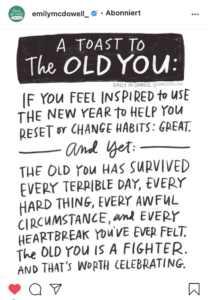 emilymcdowell_ • Abonniert
A TOAST TO
The OLD YOU:
EMILY McDOWELL
IF YOU FEEL INSPIRED to USE
THE NEW YEAR to HELP YOU
RESET or CHANGE HABITS: GREAT.
and yet:
THE OLD YOU HAS SURVIVED
EVERY TERRIBLE DAY, EVERY
HARD THING, EVERY AWFUL
CIRCUMSTANCE, and EVERY
HEARTBREAK YOU'VE EVER FELT.
The OLD YOU IS A FIGHTER.
AND THAT'S WORTH CELEBRATING.